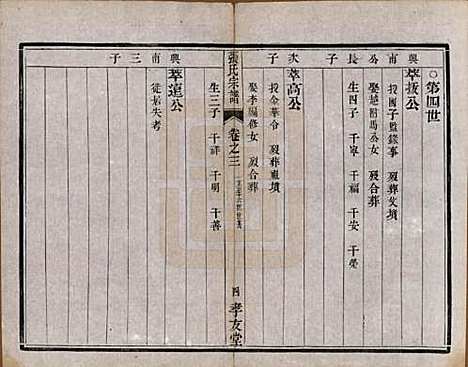 ○第四世
萃拔公
興南公長子
授國子監錄事 歿葬父墳
娶趙附馬公女 歿合葬
生四子 千寧 千福 千安 千榮
萃高公
次子
授金華令 歿葬東墳
娶李編修女 歿合葬
生三子 千祥 千明 千善
張氏宗譜 卷之三 四 孝友堂
萃遠公
興南三子
徙居失考